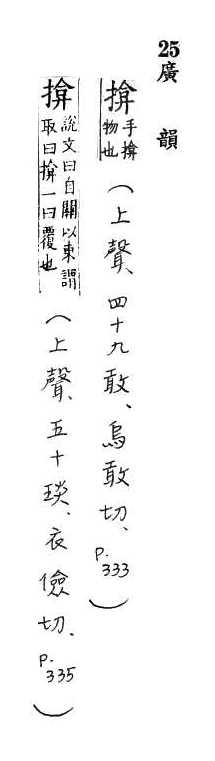 25廣韻
揜手揜物也(上聲、四十九敢、烏敢切、P.333)
揜說文曰自關以東謂取曰揜一曰覆也(上聲、五十琰、衣儉切、P.335)